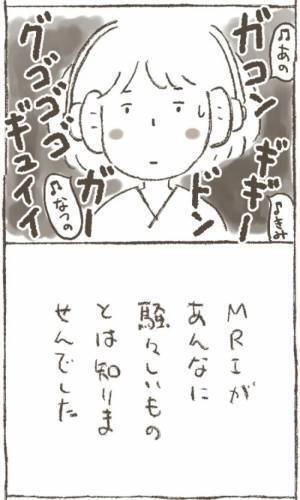 ♪あの
ガコン
ギギー
♪きみ
ドン
ガー
グゴゴゴ
ギュイイ
♪なつの
MRIが
あんなに
騒々しいもの
とは知りま
せんでした